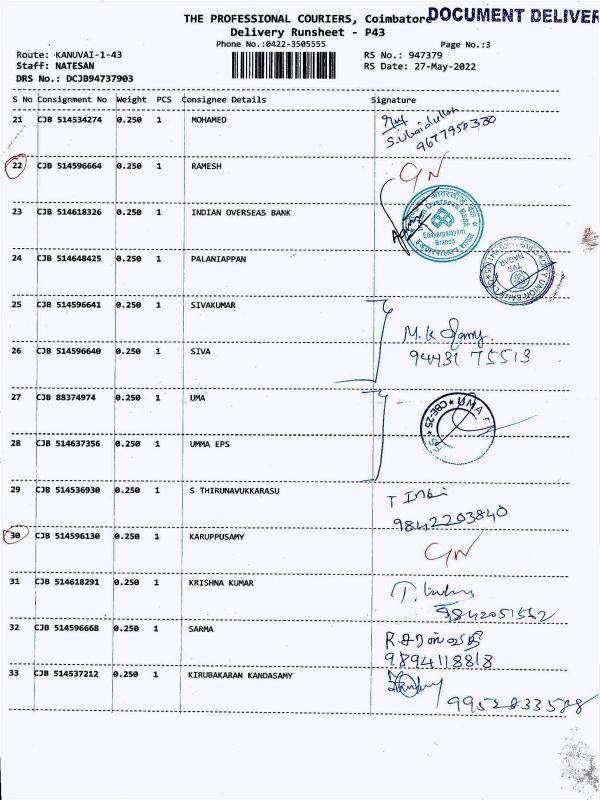 THE PROFESSIONAL COURIERS, Coimbatore
DOCUMENT DELIVER
Delivery Runsheet - P43
Phone No.:0422-3505555
Page No.:3
Route: KANUVAI-1-43
RS No.: 947379
Staff: NATESAN
RS Date: 27-May-2022
DRS No.: DCJB94737903
S No Consignment No Weight PCS Consignee Details Signature
21 CJB 514534274 0.250 1 MOHAMED
S.Ubaidullah
9677950330
22 CJB 514596664 0.250 1 RAMESH
GN
23 CJB 514618326 0.250 1 INDIAN OVERSEAS BANK
Indian Overseas Bank
Edayarpalayam
Branch
24 CJB 514648425 0.250 1 PALANIAPPAN
UNION BANK
TVS
NAGAR
25 CJB 514596641 0.250 1 SIVAKUMAR
M.K
26 CJB 514596640 0.250 1 SIVA
94431 75513
27 CJB 88374974 0.250 1 UMA
UMA
CBE-25
28 CJB 514637356 0.250 1 UMMA EPS
29 CJB 514536930 0.250 1 S THIRUNAVUKKARASU
9842203840
30 CJB 514596130 0.250 1 KARUPPUSAMY
GN
31 CJB 514618291 0.250 1 KRISHNA KUMAR
9842051552
32 CJB 514596668 0.250 1 SARMA
R சரஸ்வதி
9894118818
33 CJB 514537212 0.250 1 KIRUBAKARAN KANDASAMY
9952833588